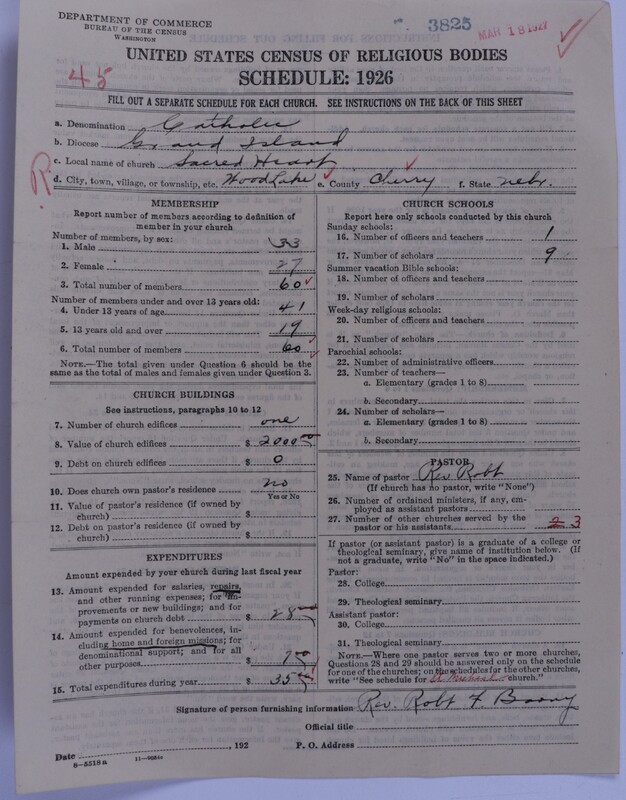 DEPARTMENT OF COMMERCE
BUREAU OF THE CENSUS
WASHINGTON
3825
MAR 18 1927
45
UNITED STATES CENSUS OF RELIGIOUS BODIES
SCHEDULE: 1926
FILL OUT A SEPARATE SCHEDULE FOR EACH CHURCH. SEE INSTRUCTIONS ON THE BACK OF THIS SHEET
a. Denomination Catholic
b. Diocese Grand Island
c. Local name of church Sacred Heart
R
d. City, town, village, or township, etc. Wood Lake e. County Cherry f. State Nebr.
MEMBERSHIP
Report number of members according to definition of
member in your church
Number of members, by sex:
1. Male 33
2. Female 27
3. Total number of members 60
Number of members under and over 13 years old:
4. Under 13 years of age 41
5. 13 years old and over 19
6. Total number of members 60
NOTE.—The total given under Question 6 should be
same as the total of males and females given under Question 3.
CHURCH BUILDINGS
See instructions, paragraphs 10 to 12
7. Number of church edifices one
8. Value of church edifices $ 2000 00
9. Debt on church edifices $ 0
10. Does church own pastor's residence no
Yes or No
11. Value of pastor's residence (if owned by
church) $
12. Debt on pastor's residence (if owned by
church) $
EXPENDITURES
Amount expended by your church during last fiscal year
13. Amount expended for salaries, repairs,
and other running expenses; for im-
provements or new buildings; and for
payments on church debt $ 28
14. Amount expended for benevolences, in-
cluding home and foreign missions; for
denominational support; and for all
other purposes $ 7 00
15. Total expenditures during year $ 35
CHURCH SCHOOLS
Report here only schools conducted by this church
Sunday schools:
16. Number of officers and teachers 1
17. Number of scholars 9
Summer vacation Bible schools:
18. Number of officers and teachers
19. Number of scholars
Week-day religious schools:
20. Number of officers and teachers
21. Number of scholars
Parochial schools:
22. Number of administrative officers
23. Number of teachers—
a. Elementary (grades 1 to 8)
b. Secondary
24. Number of scholars—
a. Elementary (grades 1 to 8)
b. Secondary
PASTOR
25. Name of pastor Rev. Robt
(If church has no pastor, write "None")
26. Number of ordained ministers, if any, em-
ployed as assistant pastors
27. Number of other churches served by the
pastor or his assistants 2 3
If pastor (or assistant pastor) is a graduate of a college or
theological seminary, give name of institution below. (If
not a graduate, write "No" in the space indicated.)
Pastor:
28. College
29. Theological seminary
Assistant pastor:
30. College
31. Theological seminary
NOTE.—Where one pastor serves two or more churches,
Questions 28 and 29 should be answered only on the schedule
for one of the churches; on the schedules for the other churches,
write "See schedule for St Michael church."
Signature of person furnishing information Rev. Robt F
Official title
Date , 192 P. O. Address
8—5518a